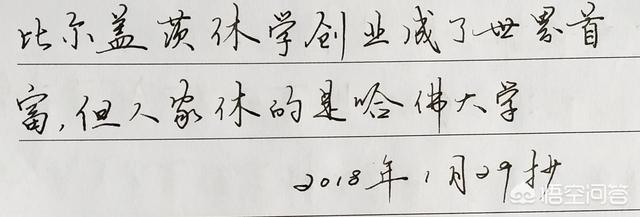 比尔盖茨休学创业成了世界首
富,但人家休的是哈佛大学
2018年1月29抄
悟空问答